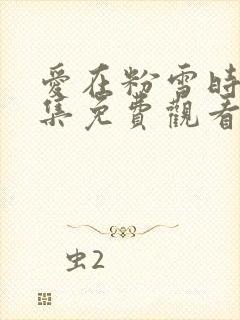 愛在粉雪時
集免費觀看
虫2